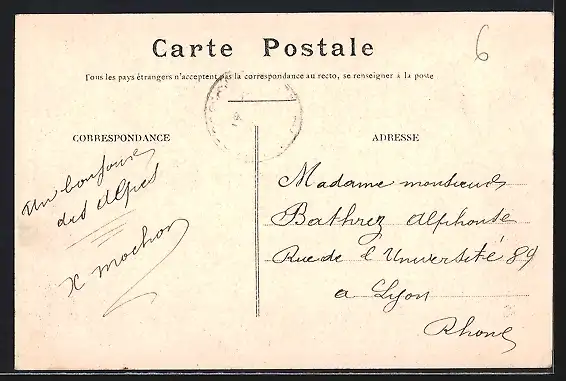 Carte Postale
6
Tous les pays étrangers n'acceptent pas la correspondance au recto, se renseigner à la poste
CORRESPONDANCE
Un bonjour
des Alpes
X mochon
ADRESSE
Madame monsieur
Bathrez Alphonse
Rue de l'Université 89
a Lyon
Rhone